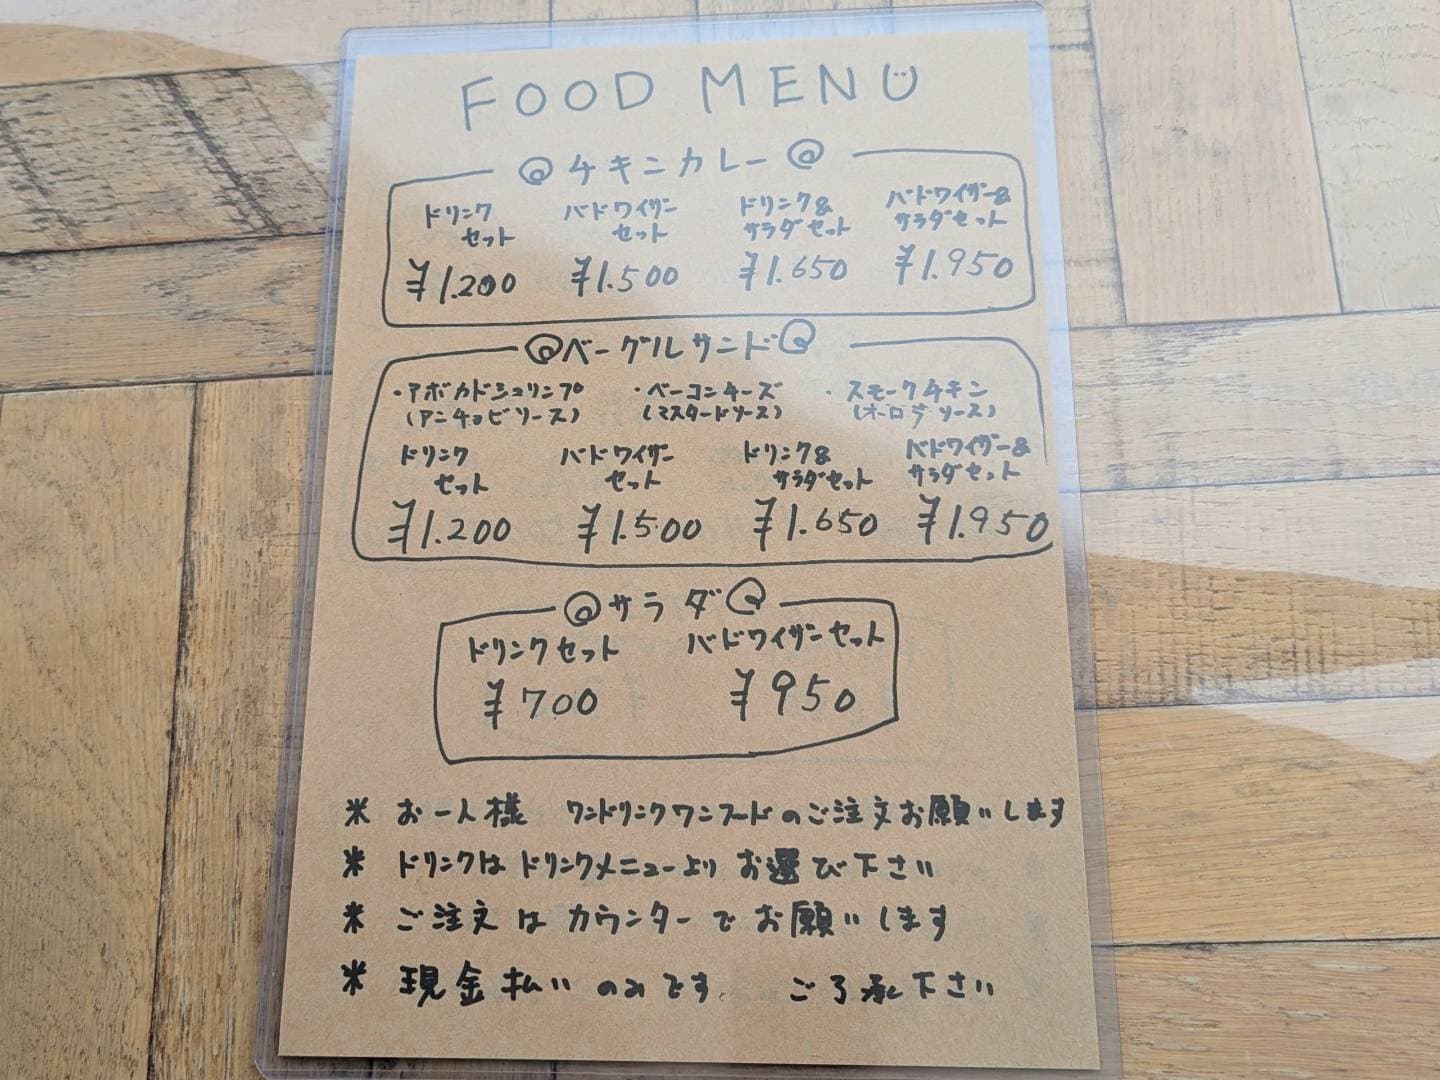 FOOD MENU
チキンカレー
ドリンク セット
バドワイザー セット
ドリンク& サラダセット
バドワイザー& サラダセット
¥1.200 ¥1.500 ¥1.650 ¥1.950
ベーグルサンド
・アボカドシュリンプ ・ベーコンチーズ ・スモークチキン
(アンチョビソース) (マスタードソース) (オーロラソース)
ドリンク セット
バドワイザー セット
ドリンク& サラダセット
バドワイザー& サラダセット
¥1.200 ¥1.500 ¥1.650 ¥1.950
サラダ
ドリンクセット バドワイザーセット
¥700 ¥950
※ お一人様 ワンドリンクワンフードのご注文お願いします
※ ドリンクはドリンクメニューよりお選び下さい
※ ご注文はカウンターでお願いします
※ 現金払いのみです. ご了承下さい